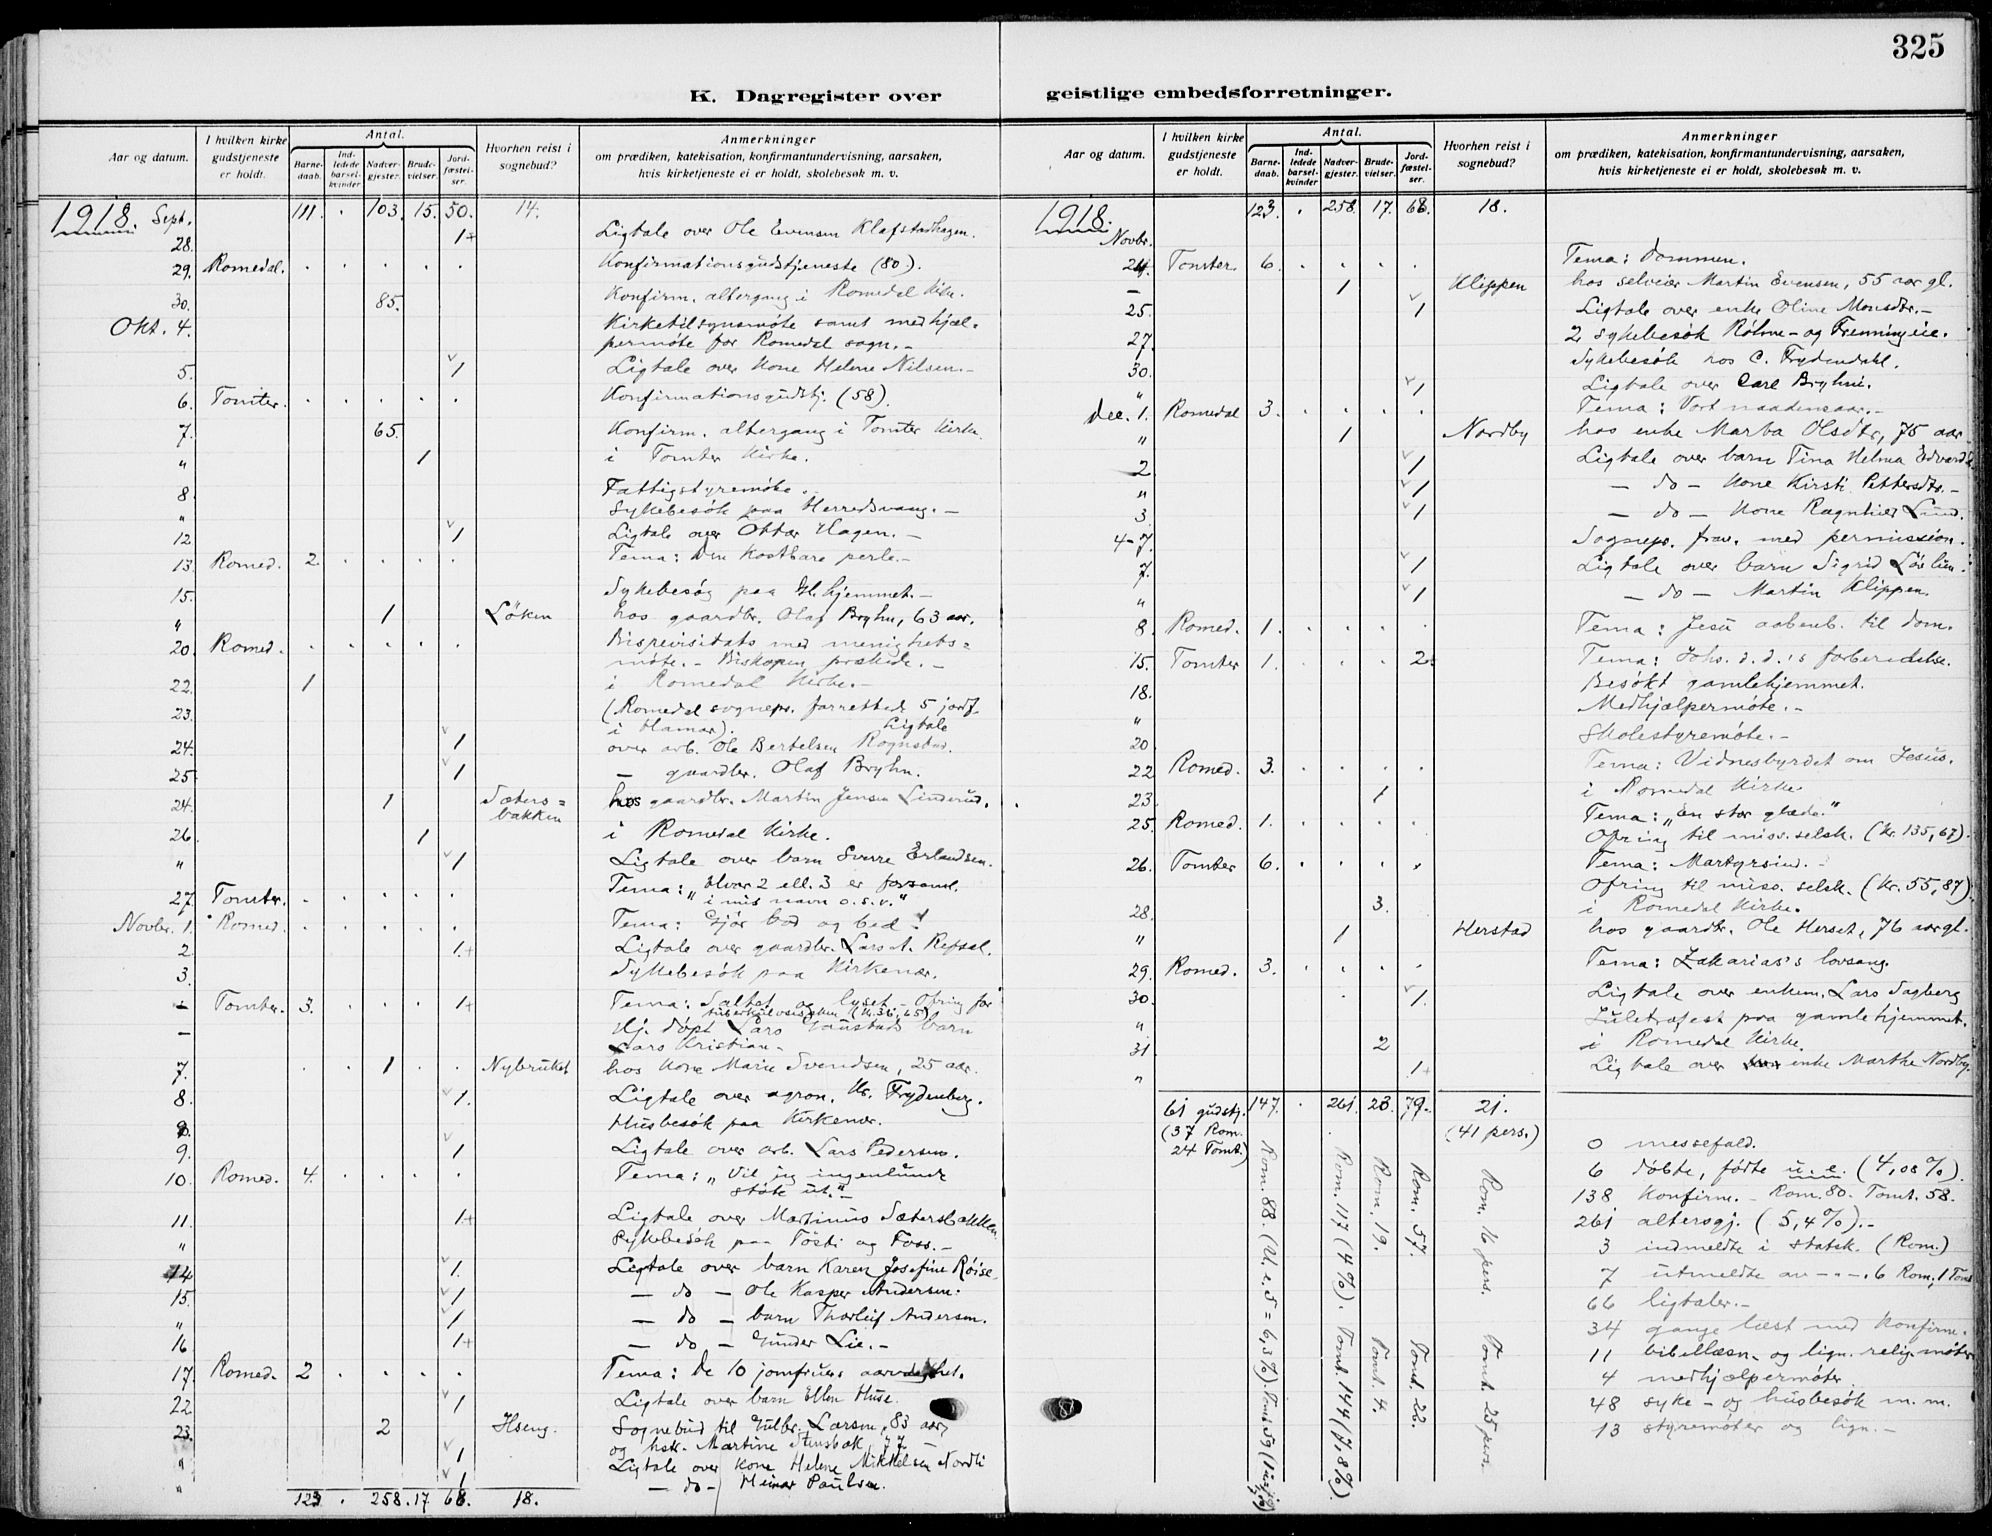 325
K. Dagregister over geistlige embedsforretninger.
Aar og datum.
I hvilken kirke gudstjeneste er holdt.
Antal.
Barnedaab.
Indledede barselkvinder
Nadvergjester.
Brudevielser.
Jordfæstelser.
Hvorhen reist i sognebud?
Anmerkninger
om prædiken, katekisation, konfirmantundervisning, aarsaken,
hvis kirketjeneste ei er holdt, skolebesøk m. v.
1918. Sept. 111 . 103. 15. 50. 14.
28. 1+ Ligtale over Ole Evensen Klafstadhagen.
29. Romedal. . . . . . Konfirmationsgudstjeneste (80).
30. 85. Konfirm. altergang i Romedal Kirke.
Okt. 4. Kirketilsynsmøte samt medhjæl-
permøte for Romedal sogn.-
5. 1 Ligtale over Kone Helene Nilsen.-
6. Tomter. . . . . . Konfirmationsgudstj. (58).
7. 65. Konfirm. altergang i Tomter Kirke.
" 1 i Tomter Kirke.
8. Fattigstyremøte.
" Sykebesøk paa Herredsvang.-
12 1 Ligtale over Ottar Hagen.-
13. Romed. 2. . . . . Tema: Den kostbare perle.-
15. Sykebesøg paa Gl. hjemmet.-
" 1 Løken hos gaardbr. Olaf Bryhn, 63 aar.
20. Romed. . . . . . Bispevisitats med menighets-
møte.- Biskopen prækede.-
22. 1 i Romedal Kirke.-
23. (Romedal sognepr. forrettede 5 jordf.
i Hamar). Ligtale
24. 1 over arb. Ole Bertelsen Rognstad.
25. 1 — gaardbr. Olaf Bryhn.
24. 1 Sæters=
bakken hos gaardbr. Martin Jensen Linderud.
26. 1 i Romedal Kirke.
" 1 Ligtale over barn Sverre Erlandsen.
27. Tomter. . . . . . Tema: "Hvor 2 ell. 3 er forsaml.
i mit navn o.s.v."
Novbr. 1. Romed. . . . . . Tema: Gjør bod og bed!
2 1+ Ligtale over gaardbr. Lars A. Refsal.
3. Sykebesøk paa Kirkenær.
— Tomter. 3. . . . 1+ Tema: Saltet og lyset - Ofring for
tuberkulosesaken (Kr. 36,65)
— Hj. døpt Lars Gaustads barn
Lars Kristian.-
7. . . 1 . . Nybrutket hos Kone Marie Svendsen, 25 aar.
8. 1. Ligtale over agron. Kr. Frydenberg.
8. Husbesøk paa Kirkenær.
9. 1 Ligtale over arb. Lars Pedersen.
10. Romed. 4. . . . . Tema: "Vil jeg ingenlunde
støte ut."-
11. 1+ Ligtale over Martinus Sætersbakken.
" Sykebesøk paa Tøsti og Foss.-
14 1. Ligtale over barn Karen Josefine Røise.
15. 1 — do — Ole Kasper Andersen.
" 1 — do — barn Thorleif Andersen.
16 1+ — do — Gunder Lie.-
17. Romed. 2 . . . . Tema: De 10 jomfruers aarvaakenhet.
22 1 Ligtale over barn Ellen Huse.
23. 2 Hseng. Sognebud til Gulbr. Larsen, 83 aar,
og hstr. Martine Stensbak, 77
" 1 Ligtale over Kone Helene Mikkelsen Nordli
" 1 — do — Heinar Paulsen.
123 . 258. 17 68. 18.
Aar og datum.
I hvilken kirke gudstjeneste er holdt.
Antal.
Barnedaab.
Indledede barselkvinder
Nadvergjester.
Brudevielser.
Jordfæstelser.
Hvorhen reist i sognebud?
Anmerkninger
om prædiken, katekisation, konfirmantundervisning, aarsaken,
hvis kirketjeneste ei er holdt, skolebesøk m. v.
1918. 123. . 258. 17. 68. 18.
Novbr.
24. Tomter. 6. . . . . Tema: Dommen.
— 1 Klippen hos selveier Martin Evensen, 55 aar gl.
25. 1 Ligtale over enke Oline Monsdtr.-
27. 2 Sykebesøk Røhne- og Frenningeie.
30. Sykebesøk hos C. Frydendahl.
" 1 Ligtale over Carl Bryhni.
Dec. 1. Romedal 3. . . . . Tema: Vort naadensaar.-
" 1 Nordby hos enke Marta Olsdtr, 75 aar
2 1 Ligtale over barn Tina Helma Edvards.
" 1 — do — Kone Kirsti Pettersdtr.-
3. 1 — do — Kone Ragnhild Lund.
4-7. Sognepr. frav. med permission.
7. 1 Ligtale over barn Sigrid Løvlien.
" 1 — do — Martin Klippen.
8. Romed. 1. . . . . Tema: Jesu aabenb. til dom.
15. Tomter 1. . . . 2. Tema: Johs. d. d.'s forberedelse.
18. Besøkt gamlehjemmet.
" Medhjælpermøte.-
20 Skolestyremøte.-
22 Romed. 3. . . . . Tema: Vidnesbyrdet om Jesus.
23. 1 i Romedal Kirke.
25. Romed. 1. . . . . Tema: "En stor glæde."
Ofring til miss.selsk. (Kr. 135,67).
26. Tomter 6. . . . . Tema: Martyrsind.-
Ofring til miss. selsk. (Kr. 55,87)
28. 3. i Romedal Kirke.
" 1 Herstad hos gaardbr. Ole Herset, 76 aar gl.
29. Romed. 3. . . . . Tema: Zakarias's lovsang.
30. 1. Ligtale over enkem. Lars Sagberg
" Juletræfest paa gamlehjemmet.
31 2 i Romedal Kirke.
" 1+ Ligtale over enke Marthe Nordby.
61 gudstj. 147. . 261. 23. 79. 21.
(37 Rom.
24 Tomt.)
(41 pers.)
Rom. 88. (U. e. 5 = 6,3%). Tomt. 59
Rom. 117 (4%). Tomt. 144 (7,8%).
Rom. 19. Tomt. 4.
Rom. 57. Tomt. 22.
Rom. 16 pers. Tomt. 25 pers.
0 messefald.
6 døbte, fødte u. e. (4,08%).
138 Konfirm. - Rom. 80. Tomt. 58.
261 altersgj. (5,4%).-
3 indmeldte i statsk. (Rom.)
7 utmeldte av -"-. 6 Rom, 1 Tomt
66 ligtaler.-
34 gange læst med konfirm.
11 bibellæsn. og lign. relig. møter
4 medhjælpermøter
48 syke- og husbesøk m. m.
13 styremøter og lign.-